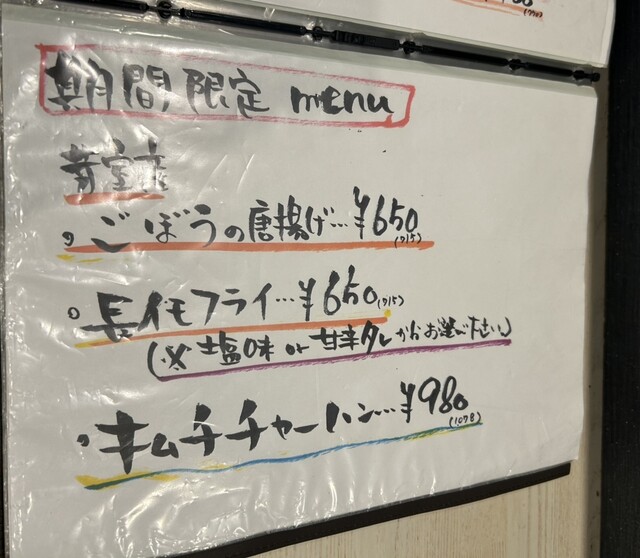 期間限定 menu
芽室産
・ごぼうの唐揚げ…¥650
(715)
・長イモフライ…¥650(715)
(※塩味 or 甘辛タレからお選び下さい)
・キムチチャーハン…¥980
(1078)